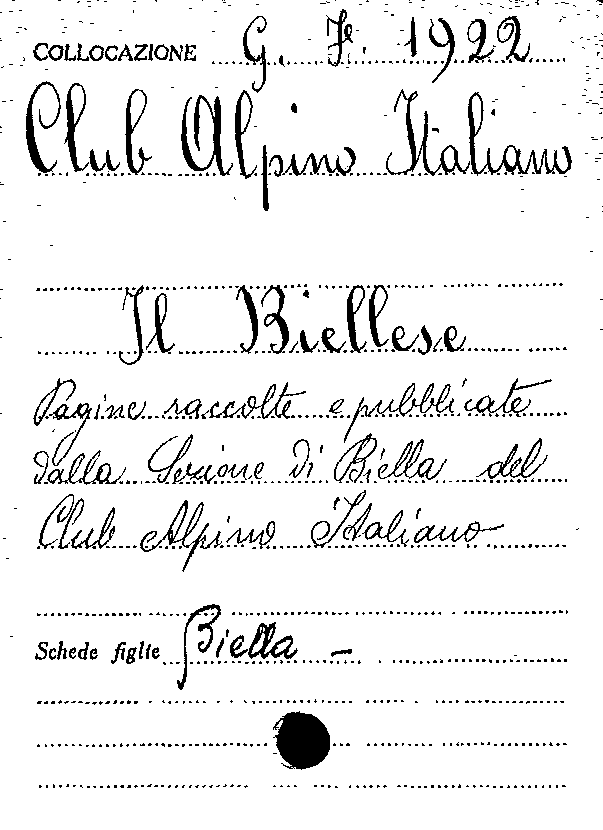 COLLOCAZIONE G. F. 1922
Club Alpino Italiano
Il Biellese
Pagine raccolte e pubblicate
dalla Sezione di Biella del
Club Alpino Italiano
Schede figlie Biella –